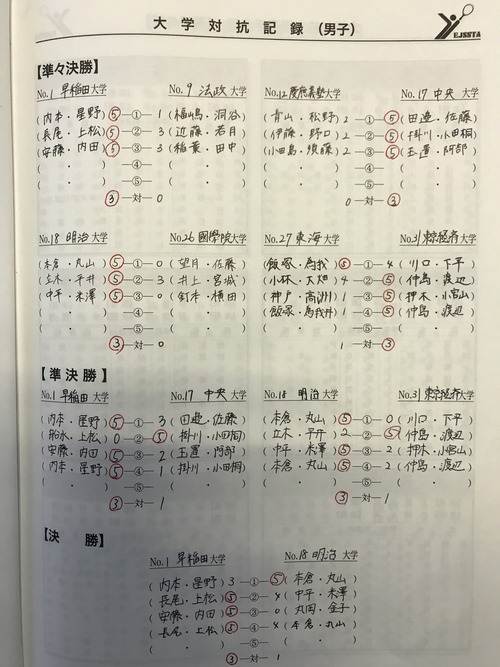 大学対抗記録(男子)
EJSSTA
【準々決勝】
No.1 早稲田大学 No.9 法政大学
(内本・星野)⑤ ―①― 1(福嶋・洞谷)
(長尾・上松)⑤ ―②― 3(近藤・若月)
(安藤・内田)⑤ ―③― 3(稲葉・田中)
( ・ ) ―④― ( ・ )
( ・ ) ―⑤― ( ・ )
③ ―対― 0
No.12 慶應義塾大学 No.17 中央大学
(青山・松野)2 ―①― ⑤(田邉・佐藤)
(伊藤・野口)2 ―②― ⑤(掛川・小田桐)
(小田島・須藤)2 ―③― ⑤(玉置・阿部)
( ・ ) ―④― ( ・ )
( ・ ) ―⑤― ( ・ )
0 ―対― ③
No.18 明治大学 No.26 國學院大学
(本倉・丸山)⑤ ―①― 0(望月・佐藤)
(立木・平井)⑤ ―②― 3(井上・宮城)
(中平・米澤)⑤ ―③― 0(釘本・横田)
( ・ ) ―④― ( ・ )
( ・ ) ―⑤― ( ・ )
③ ―対― 0
No.27 東海大学 No.31 東京経済大学
(飯塚・為我井)⑤ ―①― 4(川口・下平)
(小林・大畑)4 ―②― ⑤(仲島・渡辺)
(神戸・高洲)1 ―③― ⑤(押木・小宮山)
(飯塚・為我井)1 ―④― ⑤(仲島・渡辺)
( ・ ) ―⑤― ( ・ )
1 ―対― ③
【準決勝】
No.1 早稲田大学 No.17 中央大学
(内本・星野)⑤ ―①― 3(田邉・佐藤)
(船水・上松)0 ―②― ⑤(掛川・小田桐)
(安藤・内田)⑤ ―③― 2(玉置・阿部)
(内本・星野)⑤ ―④― 1(掛川・小田桐)
( ・ ) ―⑤― ( ・ )
③ ―対― 1
No.18 明治大学 No.31 東京経済大学
(本倉・丸山)⑤ ―①― 0(川口・下平)
(立木・平井)2 ―②― ⑤(仲島・渡辺)
(中平・米澤)⑤ ―③― 2(押木・小宮山)
(本倉・丸山)⑤ ―④― 2(仲島・渡辺)
( ・ ) ―⑤― ( ・ )
③ ―対― 1
【決 勝】
No.1 早稲田大学 No.18 明治大学
(内本・星野)3 ―①― ⑤(本倉・丸山)
(長尾・上松)⑤ ―②― 4(中平・米澤)
(安藤・内田)⑤ ―③― 0(丸岡・金子)
(長尾・上松)⑤ ―④― 4(本倉・丸山)
( ・ ) ―⑤― ( ・ )
③ ―対― 1